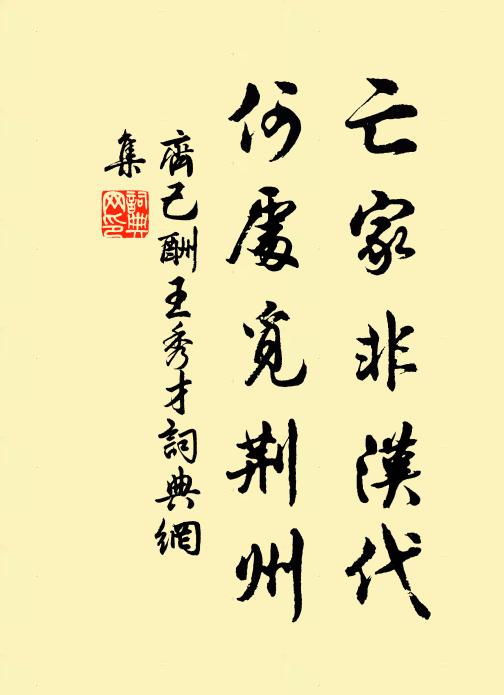 亡家非漢代
何處覓荆州
齊己酬王秀才詞典網
集
詞典
网印